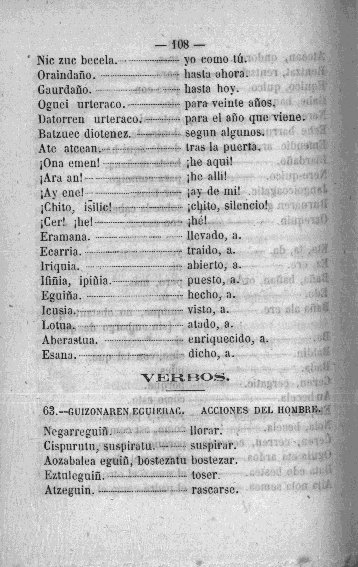 — 108 —
Nic zuc becela. yo como tú.
Oraindaño. hasta ahora.
Gaurdaño. hasta hoy.
Oguei urteraco. para veinte años.
Datorren urteraco. para el año que viene.
Batzuec diotenez. segun algunos.
Ate atcean. tras la puerta.
¡Ona emen! ¡he aqui!
¡Ara an! ¡he alli!
¡Ay ene! ¡ay de mi!
¡Chito, isilic! ¡chito, silencio!
¡Cer! ¡he! ¡hé!
Eramana. llevado, a.
Ecarria. traido, a.
Iriquia. abierto, a.
Ifiñia, ipiñia. puesto, a.
Eguiña. hecho, a.
Icusia. visto, a.
Lotua. atado, a.
Aberastua. enriquecido, a.
Esana. dicho, a.
VERBOS.
63.—GUIZONAREN EGUIERAC. ACCIONES DEL HOMBRE.
Negarreguiñ. llorar.
Cispurutu, suspiratu. suspirar.
Aozabalea eguiñ, bostezatu bostezar.
Eztuleguiñ. toser.
Atzeguin. rascarse.